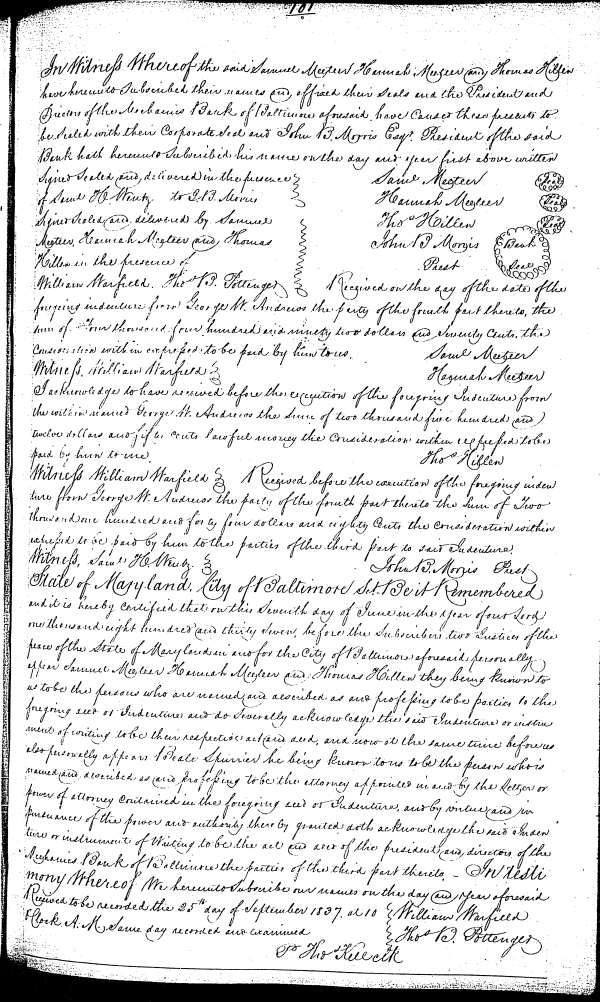 181
In Witness Whereof the said Samuel Meeteer Hannah Meeteer and Thomas Hillen
have hereunto Subscribed their names and affixed their Seals and the President and
Directors of the Mechanics Bank of Baltimore aforesaid, have Caused these presents to
be Sealed with their Corporate Seal and John B. Morris Esqr. President of the said
Bank hath hereunto Subscribed his name on the day and year first above written
Signed Sealed and delivered in the presence Saml Meeteer Seal
of Saml H. Wentz to J. B. Morris Hannah Meeteer Seal
Signed Sealed and delivered by Samuel Thos Hillen Seal
Meeteer, Hannah Meeteer and Thomas John B. Morris Bank
Hillen in the presence of Prest Seal
William Warfield. Thos B. Pottenger Received on the day of the date of the
foregoing indenture from George W. Andrews the party of the fourth part thereto, the
sum of Four thousand four hundred and ninety two dollars and Seventy Cents, the
Consideration within expressed to be paid by him to us. Saml Meeteer
Witness, William Warfield Hannah Meeteer
I acknowledge to have received before the execution of the foregoing Indenture from
the within named George W. Andrews the Sum of two thousand five hundred and
twelve dollars and fifty cents lawful money the Consideration within expressed to be
paid by him to me. Thos Hillen
Witness William Warfield Received before the execution of the foregoing inden
ture from George W. Andrews the party of the fourth part thereto the Sum of Two
thousand one hundred and forty four dollars and eighty Cents the consideration within
expressed to be paid by him to the parties of the third part to said Indenture.
Witness, Saml H. Wentz. John B. Morris Prest
State of Maryland, City of Baltimore Sct. Be it Remembered
and it is hereby certified that on this Seventh day of June in the year of our Lord
one thousand eight hundred and thirty Seven, before the Subscribers two Justices of the
peace of the State of Maryland in and for the City of Baltimore aforesaid, personally
appear Samuel Meeteer Hannah Meeteer and Thomas Hillen they being known to
us to be the persons who are named and described as and professing to be parties to the
foregoing deed or Indenture and do Severally acknowledge the said Indenture or instru
ment of writing to be their respective act and deed, and now at the same time before us
also personally appears Beale Spurrier he being known to us to be the person who is
named and described as and professing to be the attorney appointed in and by the Letter or
power of attorney contained in the foregoing deed or Indenture, and by virtue and in
pursuance of the power and authority thereby granted doth acknowledge the said Inden
ture or instrument of Writing to be the act and deed of the president and directors of the
Mechanics Bank of Baltimore the parties of the third part thereto. - In testi
mony Whereof We hereunto Subscribe our names on the day and year aforesaid
Received to be recorded the 25th day of September 1837. at 10 William Warfield
OClock A. M. Same day recorded and examined Thos B. Pottenger
Pr Thos Kell Clk